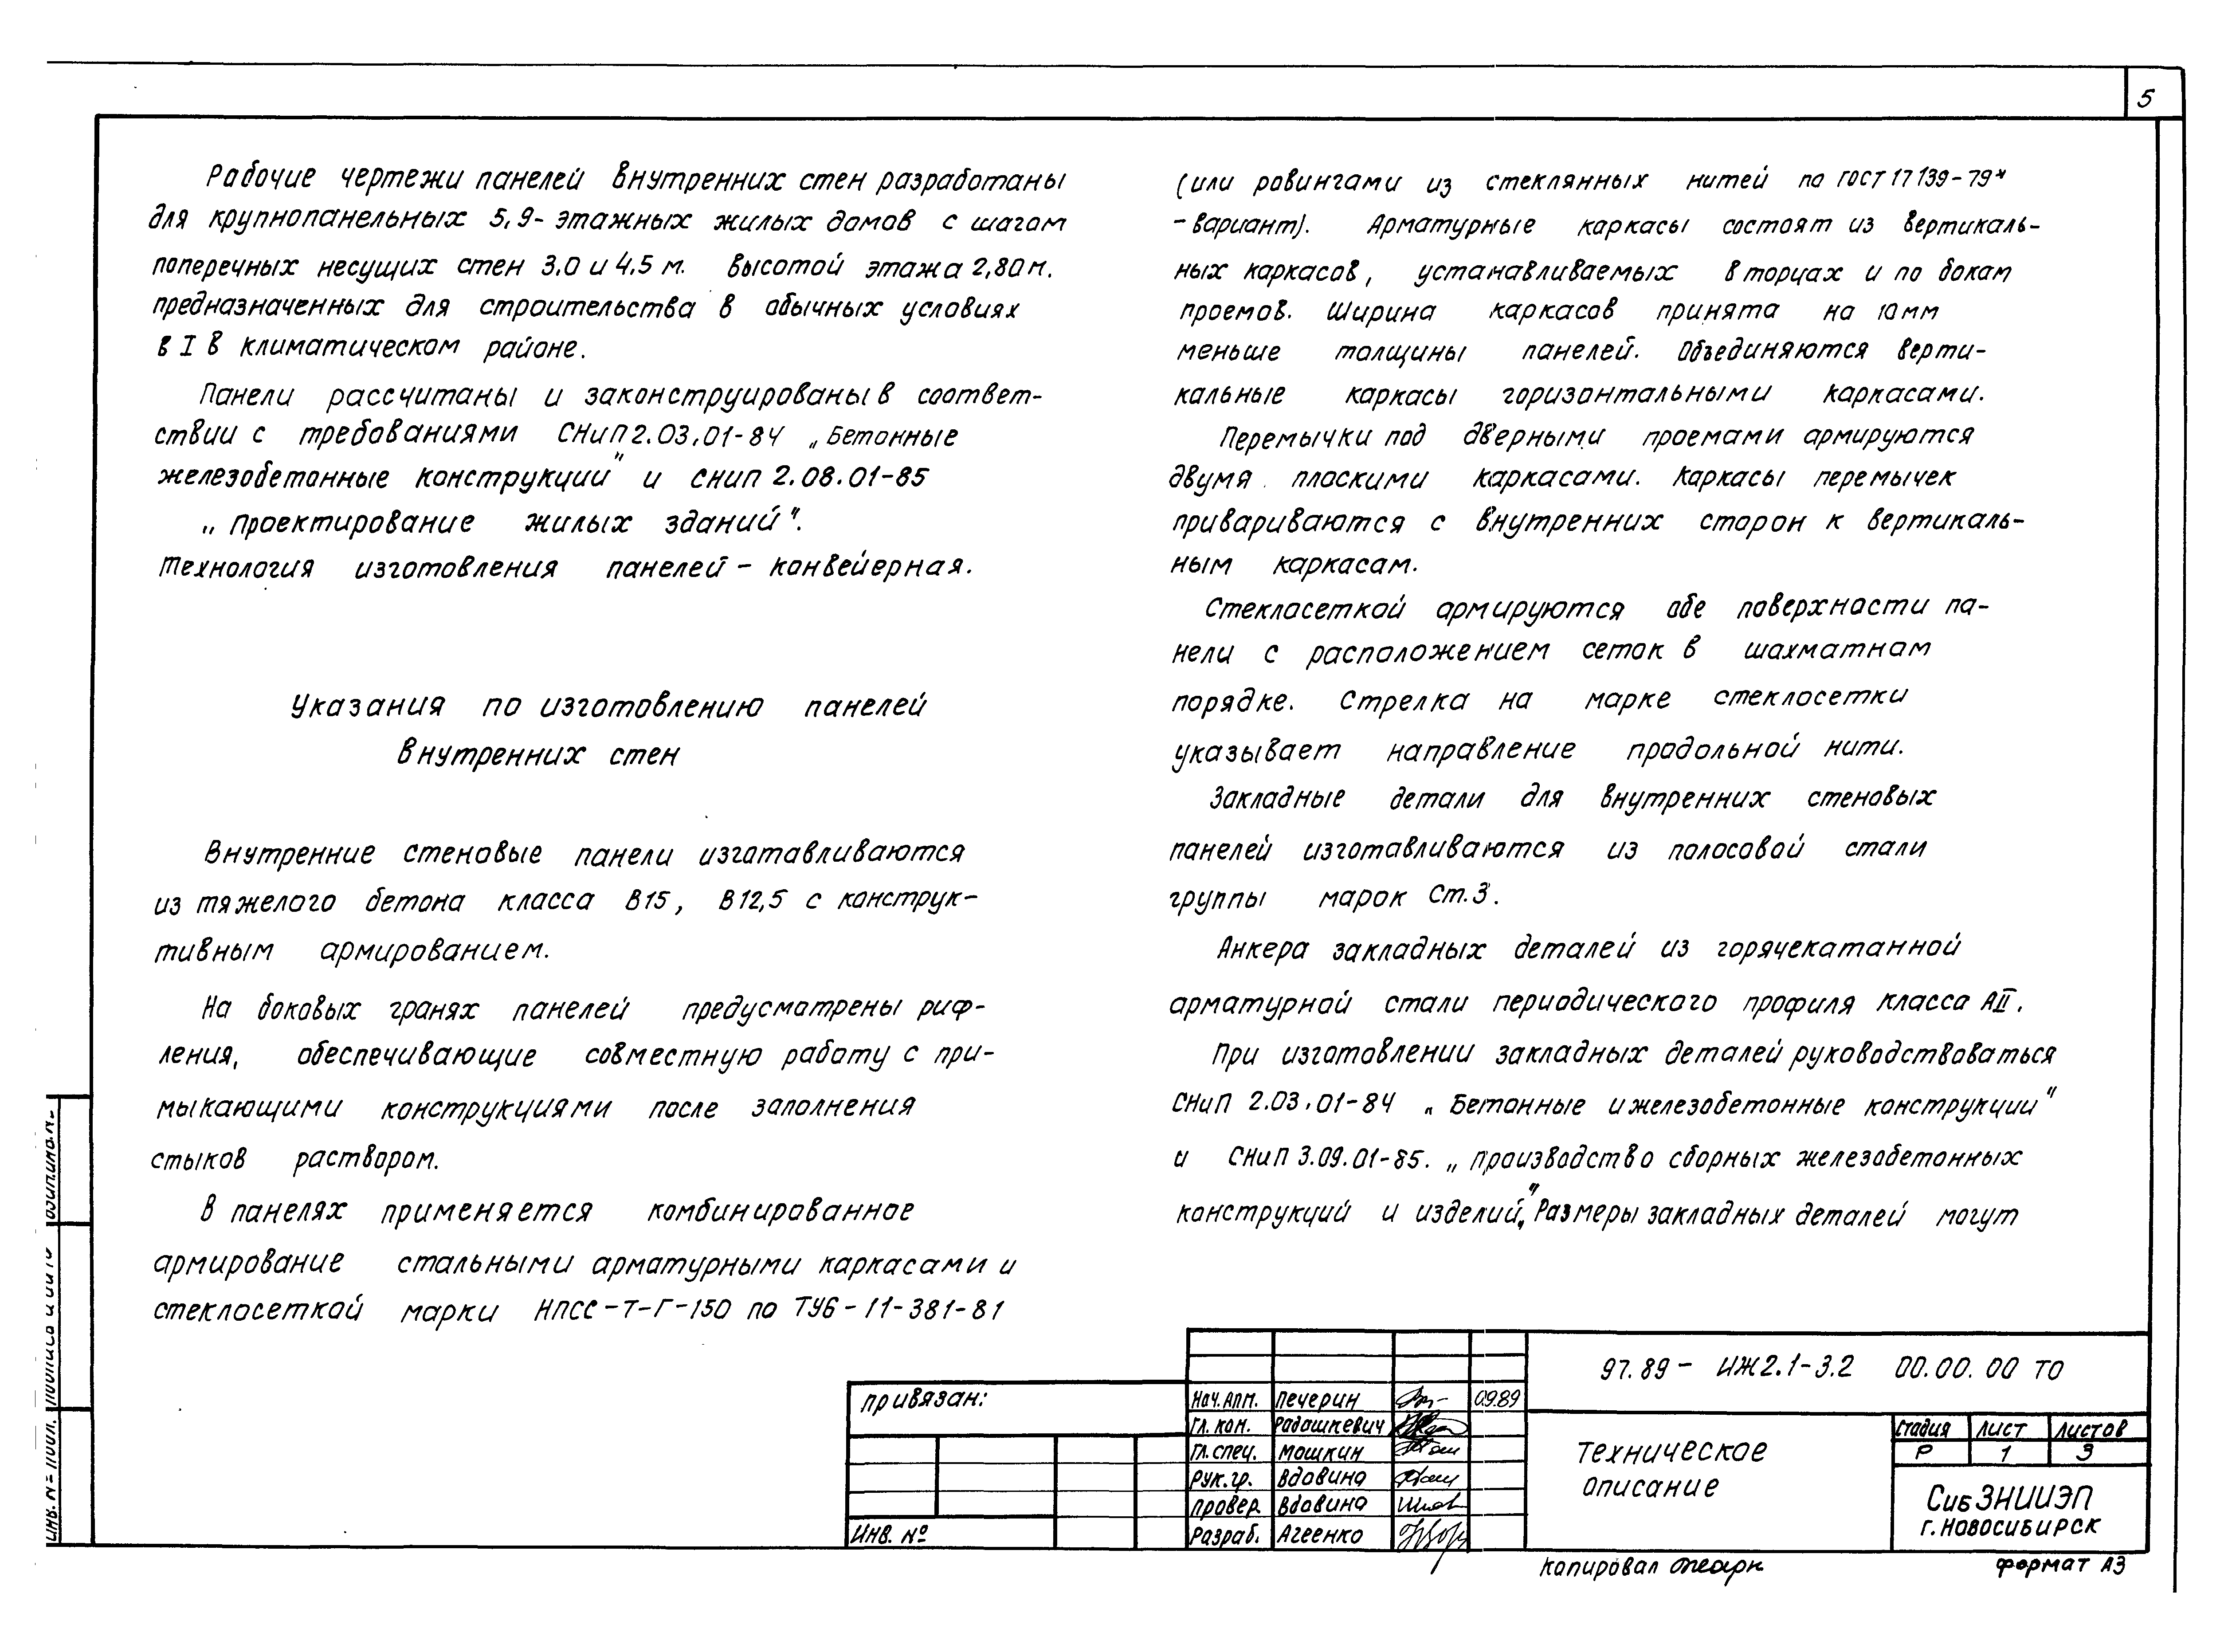 5
Рабочие чертежи панелей внутренних стен разработаны
для крупнопанельных 5,9-этажных жилых домов с шагом
поперечных несущих стен 3,0 и 4,5 м. высотой этажа 2,80 м.
предназначенных для строительства в обычных условиях
в I в климатическом районе.
Панели рассчитаны и законструированы в соответ-
ствии с требованиями СНиП 2.03.01-84 „Бетонные
железобетонные конструкции" и СНиП 2.08.01-85
„Проектирование жилых зданий".
Технология изготовления панелей - конвейерная.
Указания по изготовлению панелей
внутренних стен
Внутренние стеновые панели изготавливаются
из тяжелого бетона класса В15, В12,5 с конструк-
тивным армированием.
На боковых гранях панелей предусмотрены риф-
ления, обеспечивающие совместную работу с при-
мыкающими конструкциями после заполнения
стыков раствором.
В панелях применяется комбинированное
армирование стальными арматурными каркасами и
стеклосеткой марки НПСС-Т-Г-150 по ТУ6-11-381-81
(или ровингами из стеклянных нитей по ГОСТ 17139-79*
-вариант). Арматурные каркасы состоят из вертикаль-
ных каркасов, устанавливаемых в торцах и по бокам
проемов. Ширина каркасов принята на 10 мм
меньше толщины панелей. Объединяются верти-
кальные каркасы горизонтальными каркасами.
Перемычки под дверными проемами армируются
двумя плоскими каркасами. Каркасы перемычек
привариваются с внутренних сторон к вертикаль-
ным каркасам.
Стеклосеткой армируются обе поверхности па-
нели с расположением сеток в шахматном
порядке. Стрелка на марке стеклосетки
указывает направление продольной нити.
Закладные детали для внутренних стеновых
панелей изготавливаются из полосовой стали
группы марок Ст.3.
Анкера закладных деталей из горячекатанной
арматурной стали периодического профиля класса АII.
При изготовлении закладных деталей руководствоваться
СНиП 2.03.01-84 „Бетонные и железобетонные конструкции"
и СНиП 3.09.01-85. „Производство сборных железобетонных
конструкций и изделий". Размеры закладных деталей могут
привязан:
Инв. №
Нач. АПМ. Печерин 09.89
Гл. кон. Радашкевич
Гл. спец. Мошкин
Рук. гр. Вдовина
Провер. Вдовина
Разраб. Агеенко
97.89 - ИЖ2.1-3.2 00.00.00 ТО
Техническое
описание
Стадия Лист Листов
Р 1 3
СибЗНИИЭП
г. Новосибирск
Копировал
Формат А3